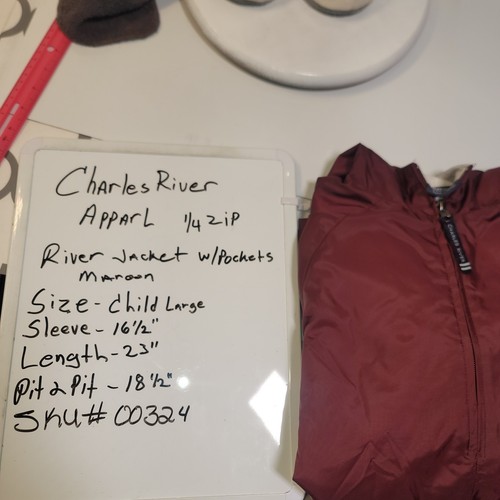 Charles River
Apparl 1/4 zip
River Jacket w/Pockets
Maroon
Size - Child Large
Sleeve - 16 1/2"
Length - 23"
Pit 2 Pit - 18 1/2"
SKU# 00324
CHARLES RIVER